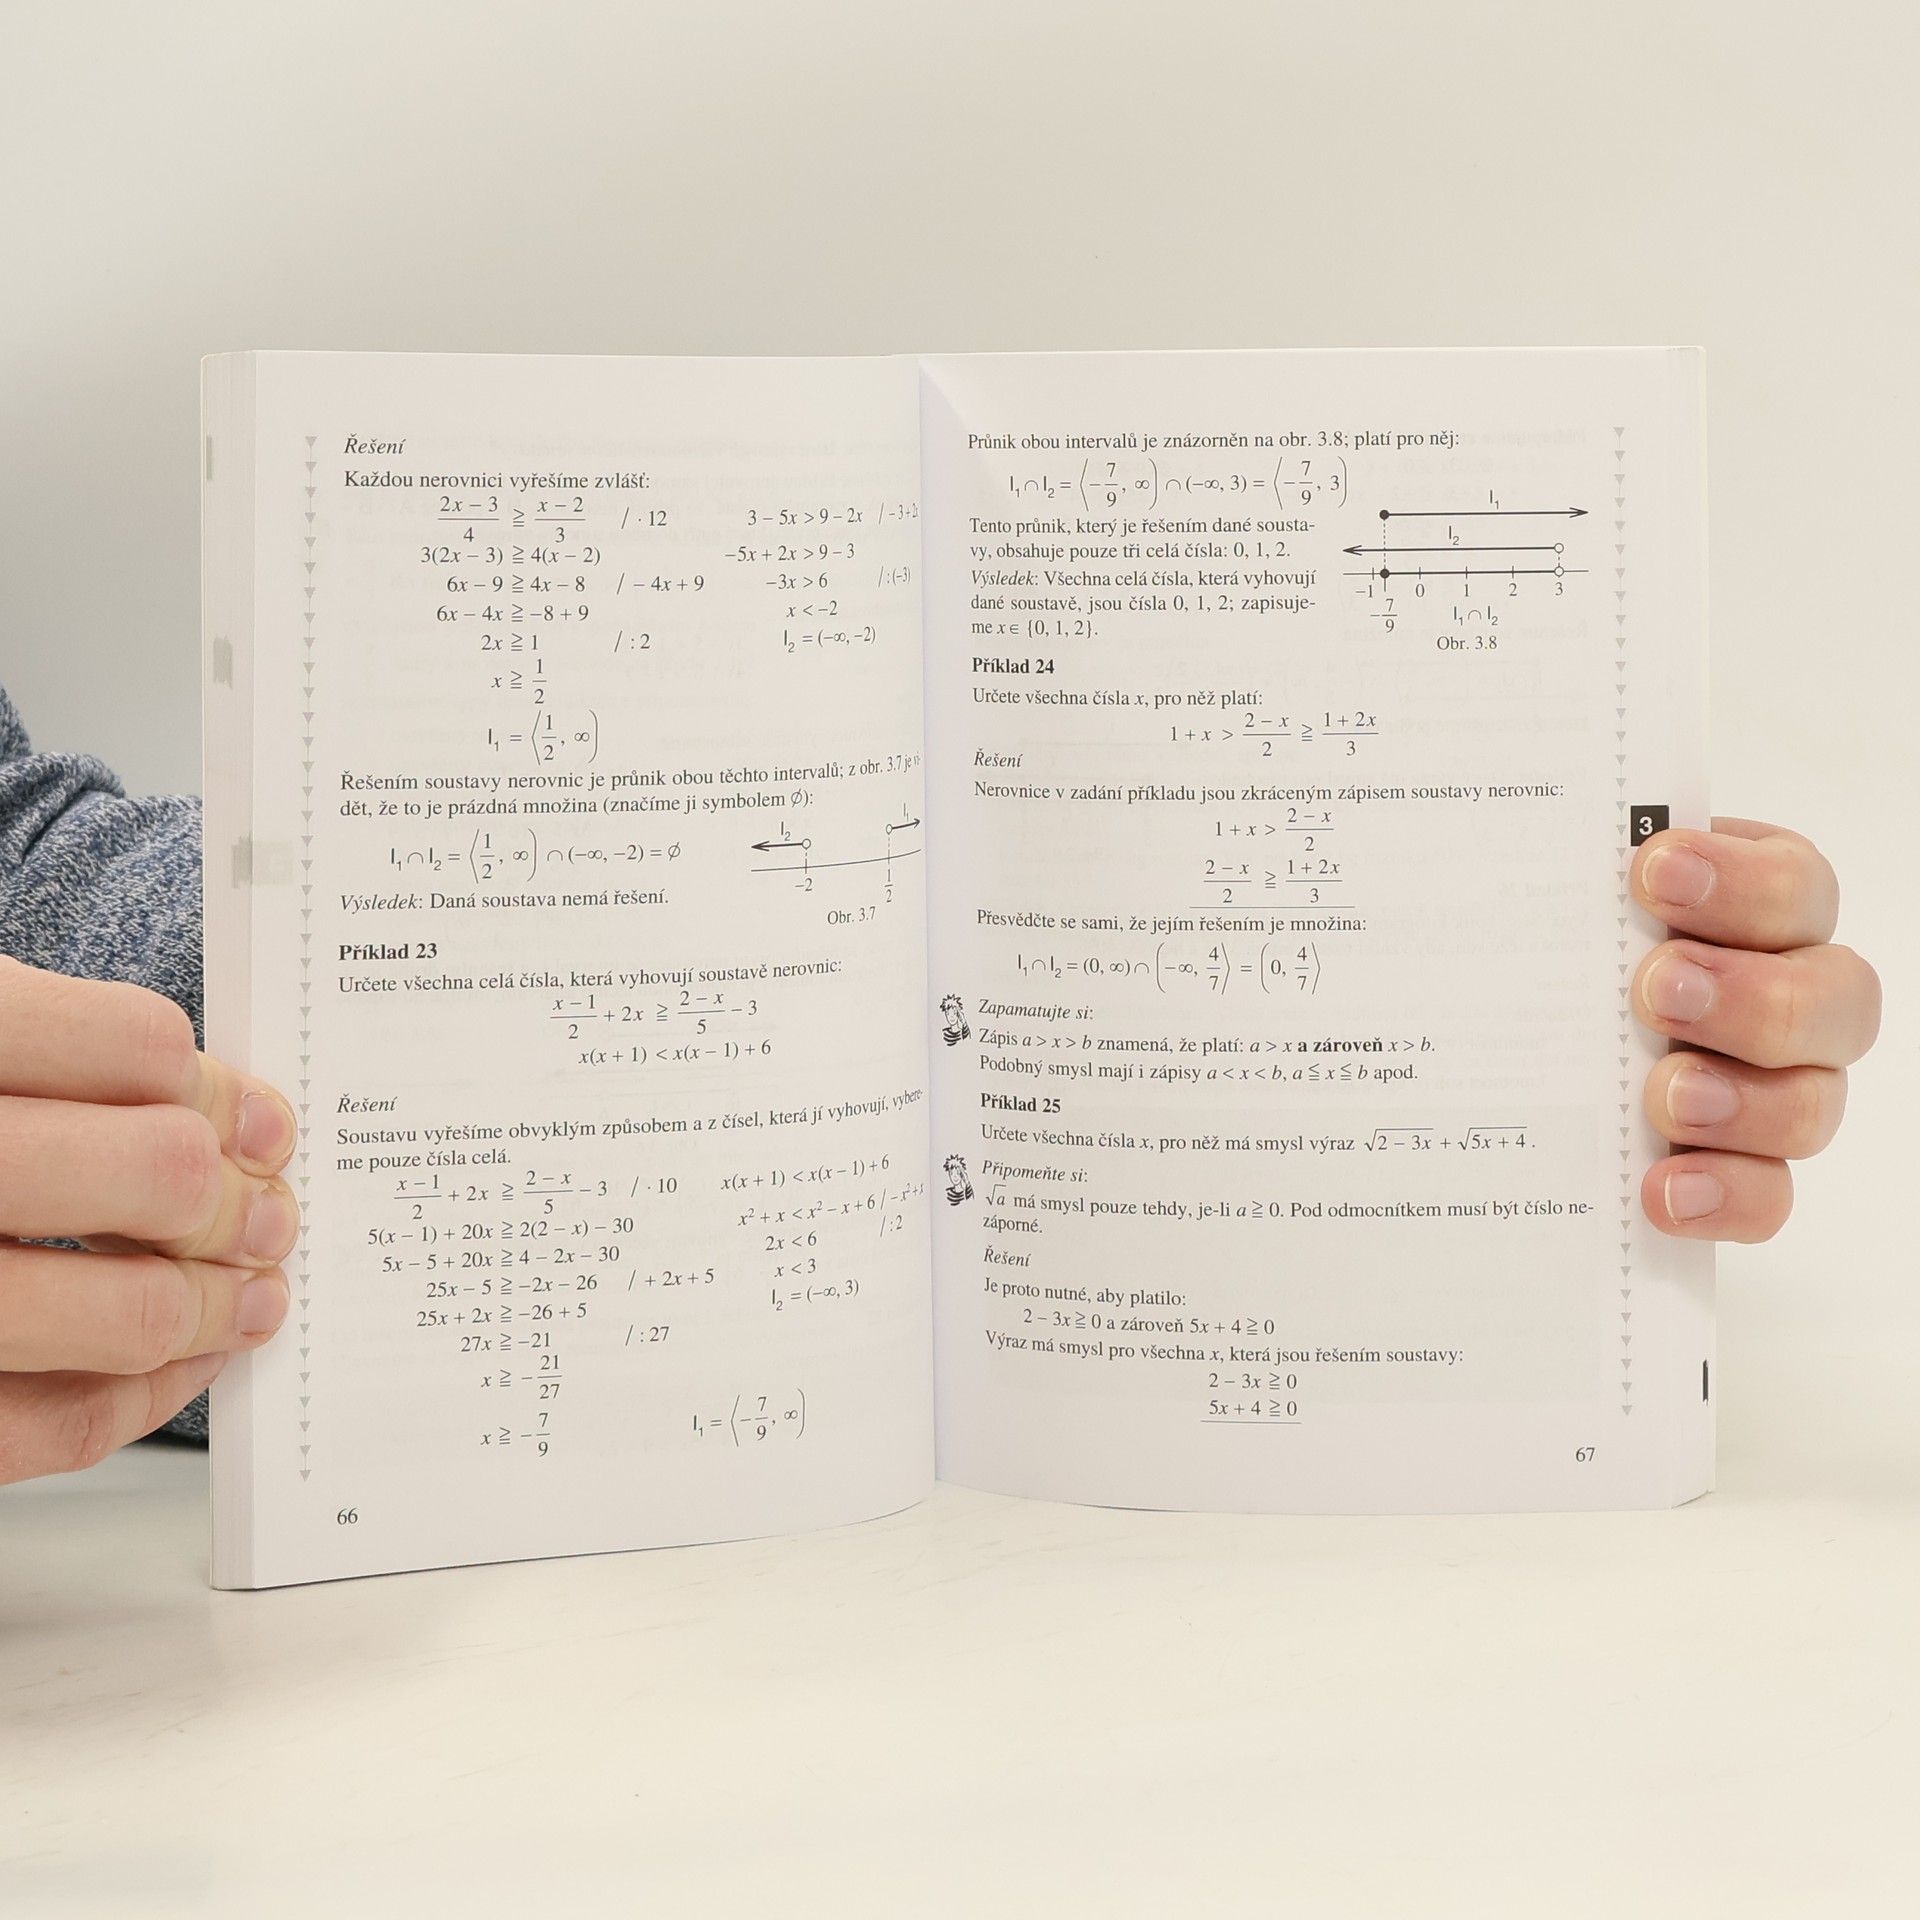 Řešení
Každou nerovnici vyřešíme zvlášť:
(2x − 3)/4 ≧ (x − 2)/3 / · 12 3 − 5x > 9 − 2x / −3 + 2x
3(2x − 3) ≧ 4(x − 2) −5x + 2x > 9 − 3
6x − 9 ≧ 4x − 8 / − 4x + 9 −3x > 6 / : (−3)
6x − 4x ≧ −8 + 9 x < −2
2x ≧ 1 / : 2 I₂ = (−∞, −2)
x ≧ 1/2
I₁ = ⟨1/2, ∞)
Řešením soustavy nerovnic je průnik obou těchto intervalů; z obr. 3.7 je vi-
dět, že to je prázdná množina (značíme ji symbolem ∅):
I₁ ∩ I₂ = ⟨1/2, ∞) ∩ (−∞, −2) = ∅
I₂ I₁
−2 1/2
Výsledek: Daná soustava nemá řešení.
Obr. 3.7
Příklad 23
Určete všechna celá čísla, která vyhovují soustavě nerovnic:
(x − 1)/2 + 2x ≧ (2 − x)/5 − 3
x(x + 1) < x(x − 1) + 6
Řešení
Soustavu vyřešíme obvyklým způsobem a z čísel, která jí vyhovují, vybere-
me pouze čísla celá.
(x − 1)/2 + 2x ≧ (2 − x)/5 − 3 / · 10 x(x + 1) < x(x − 1) + 6
5(x − 1) + 20x ≧ 2(2 − x) − 30 x² + x < x² − x + 6 / − x² + x
5x − 5 + 20x ≧ 4 − 2x − 30 2x < 6 / : 2
25x − 5 ≧ −2x − 26 / + 2x + 5 x < 3
25x + 2x ≧ −26 + 5 I₂ = (−∞, 3)
27x ≧ −21 / : 27
x ≧ −21/27
x ≧ −7/9 I₁ = ⟨−7/9, ∞)
66
Průnik obou intervalů je znázorněn na obr. 3.8; platí pro něj:
I₁ ∩ I₂ = ⟨−7/9, ∞) ∩ (−∞, 3) = ⟨−7/9, 3)
Tento průnik, který je řešením dané sousta-
vy, obsahuje pouze tři celá čísla: 0, 1, 2.
Výsledek: Všechna celá čísla, která vyhovují
dané soustavě, jsou čísla 0, 1, 2; zapisuje-
me x ∈ {0, 1, 2}.
I₁
I₂
−1 0 1 2 3
−7/9 I₁ ∩ I₂
Obr. 3.8
Příklad 24
Určete všechna čísla x, pro něž platí:
1 + x > (2 − x)/2 ≧ (1 + 2x)/3
Řešení
Nerovnice v zadání příkladu jsou zkráceným zápisem soustavy nerovnic:
1 + x > (2 − x)/2
(2 − x)/2 ≧ (1 + 2x)/3
3
Přesvědčte se sami, že jejím řešením je množina:
I₁ ∩ I₂ = (0, ∞) ∩ (−∞, 4/7⟩ = (0, 4/7⟩
Zapamatujte si:
Zápis a > x > b znamená, že platí: a > x a zároveň x > b.
Podobný smysl mají i zápisy a < x < b, a ≦ x ≦ b apod.
Příklad 25
Určete všechna čísla x, pro něž má smysl výraz √(2 − 3x) + √(5x + 4) .
Připomeňte si:
√a má smysl pouze tehdy, je-li a ≧ 0. Pod odmocnítkem musí být číslo ne-
záporné.
Řešení
Je proto nutné, aby platilo:
2 − 3x ≧ 0 a zároveň 5x + 4 ≧ 0
Výraz má smysl pro všechna x, která jsou řešením soustavy:
2 − 3x ≧ 0
5x + 4 ≧ 0
67